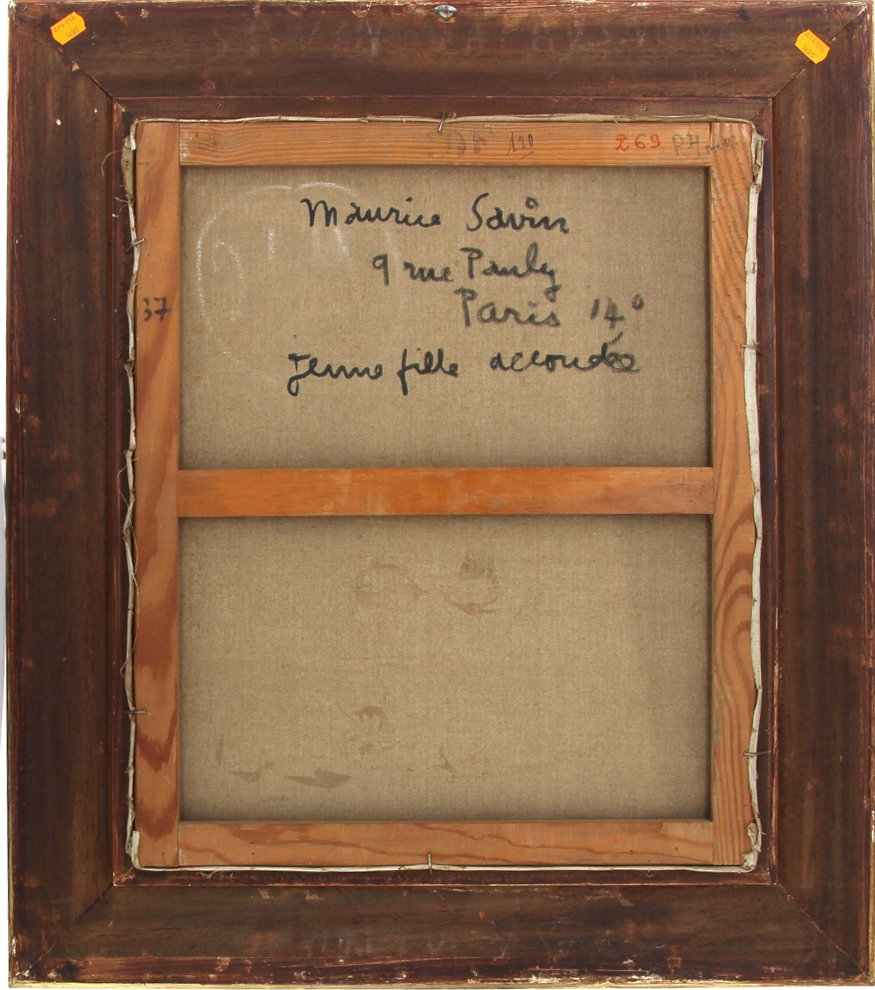 120 269
Maurice Savin
9 rue Pauly
Paris 14e
37
Jeune fille accoudée